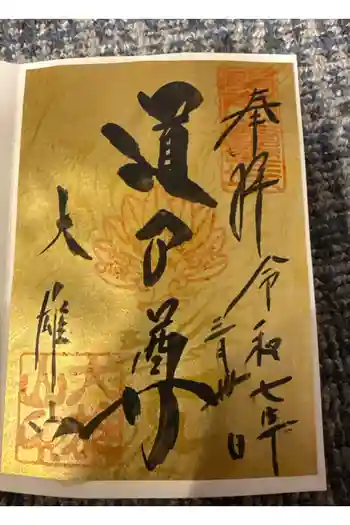 奉拝 令和七年
三月卅日
道了尊
大雄山